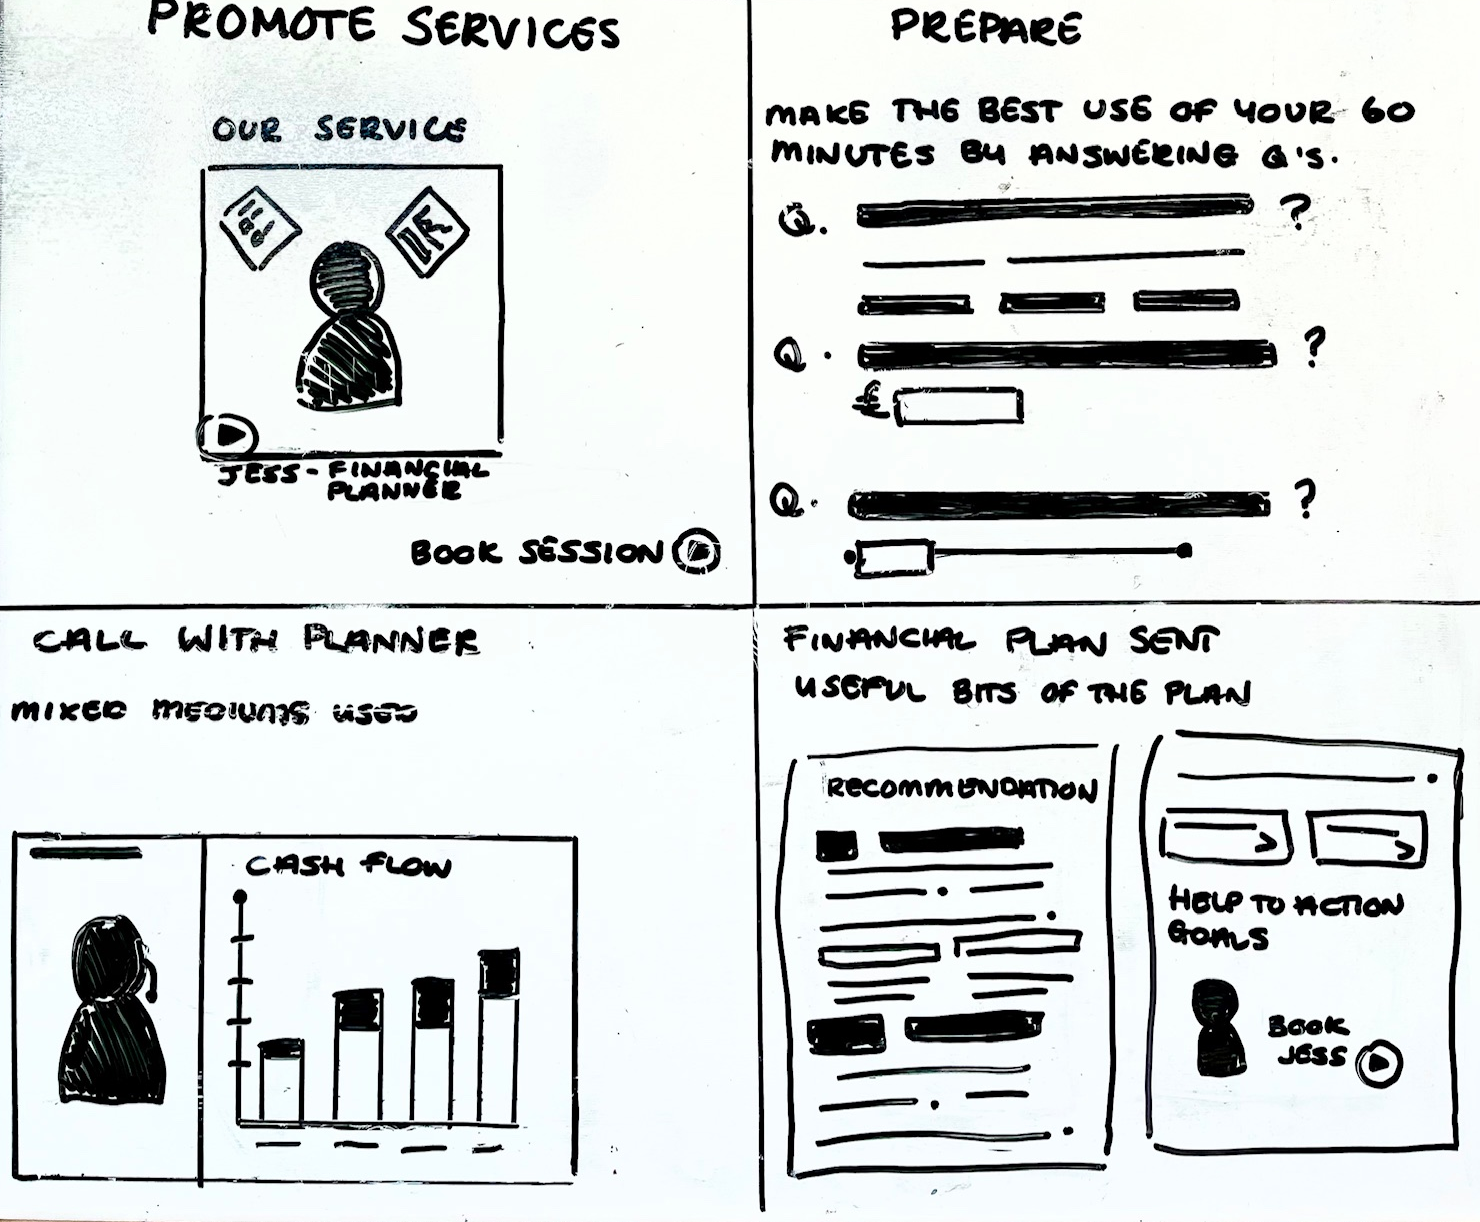 PROMOTE SERVICES
OUR SERVICE
JESS - FINANCIAL
PLANNER
BOOK SESSION
PREPARE
MAKE THE BEST USE OF YOUR 60
MINUTES BY ANSWERING Q'S.
Q. ?
Q. ?
£
Q. ?
CALL WITH PLANNER
MIXED MEDIUMS USED
CASH FLOW
FINANCIAL PLAN SENT
USEFUL BITS OF THE PLAN
RECOMMENDATION
HELP TO ACTION
GOALS
BOOK
JESS